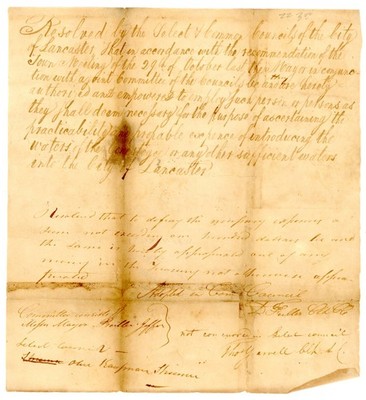 Resolved by the Select & Common Councils of the City
of Lancaster, that in accordance with the recommendation of the
Town Meeting of the 29th of October last the Mayor in conjunc
tion with a joint Committee of the Councils be and they are hereby
authorised and empowered to employ such person or persons as
they shall deem necessary for the purpose of ascertaining the
practicability and probable expence of introducing the
waters of the or any other sufficient waters
into the City of Lancaster
Resolved that to defray the necessary expences a
sum not exceeding one hundred dollars be and
the same is hereby appropriated out of any
money in the treasury not otherwise appro
priated
Adopted in Com Council
Committee consists of
Messrs Mayor
not concurred in Select council
Select Council